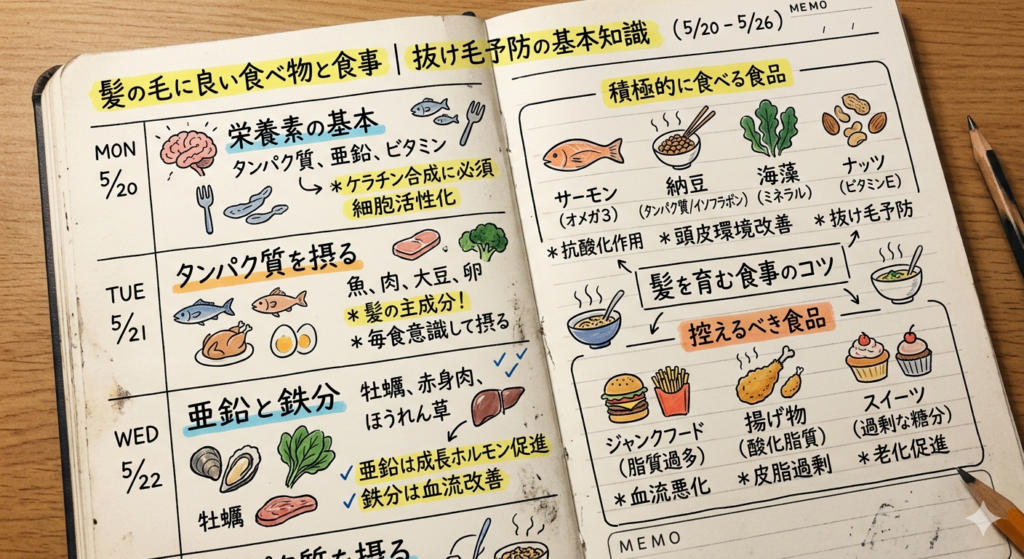 髪の毛に良い食べ物と食事 | 抜け毛予防の基本知識 (5/20 – 5/26)
MON
5/20
栄養素の基本
タンパク質、亜鉛、ビタミン
*ケラチン合成に必須
細胞活性化
TUE
5/21
タンパク質を摂る
魚、肉、大豆、卵
*髪の主成分!
*毎食意識して摂る
WED
5/22
亜鉛と鉄分
牡蠣、赤身肉、
ほうれん草
✓亜鉛は成長ホルモン促進
✓鉄分は血流改善
牡蠣
ク質を摂る
MEMO
/ /
積極的に食べる食品
サーモン
(オメガ3)
納豆
(タンパク質/イソフラボン)
海藻
(ミネラル)
ナッツ
(ビタミンE)
*抗酸化作用
*頭皮環境改善
*抜け毛予防
髪を育む食事のコツ
控えるべき食品
ジャンクフード
(脂質過多)
*血流悪化
揚げ物
(酸化脂質)
*皮脂過剰
スイーツ
(過剰な糖分)
*老化促進
MEMO